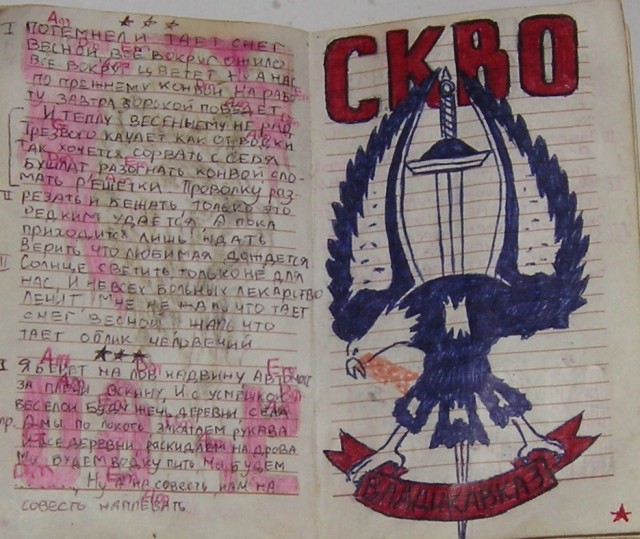 Am
* * *
I ПОТЕМНЕЛ И ТАЕТ СНЕГ
ВЕСНОЙ ВСЁ ВОКРУГ ОЖИЛО
ВСЕ ВОКРУГ ЦВЕТЕТ НУ А НАС
ПО ПРЕЖНЕМУ КОНВОЙ НА РАБО
ТУ ЗАВТРА ЗОРЬКОЙ ПОВЕДЕТ
И ТЕПЛУ ВЕСЕННЕМУ НЕ РАД
ТРЕЗВОГО КАЧАЕТ КАК ОТ ВОДКИ
ТАК ХОЧЕТСЯ СОРВАТЬ С СЕБЯ
БУШЛАТ РАЗОГНАТЬ КОНВОЙ СЛО-
МАТЬ РЕШЁТКИ ПРОВОЛКУ РАЗ-
II РЕЗАТЬ И БЕЖАТЬ ТОЛЬКО ЭТО
РЕДКИМ УДАЁТСЯ А ПОКА
ПРИХОДИТСЯ ЛИШЬ ЖДАТЬ
ВЕРИТЬ ЧТО ЛЮБИМАЯ ДОЖДЕТСЯ
СОЛНЦЕ СВЕТИТ ТОЛЬКО НЕ ДЛЯ
НАС И НЕ ВСЕХ БОЛЬНЫХ ЛЕКАРСТВО
ЛЕЧИТ МНЕ НЕ ЖАЛЬ ЧТО ТАЕТ
СНЕГ ВЕСНОЙ ЖАЛЬ ЧТО
ТАЕТ ОБЛИК ЧЕЛОВЕЧИЙ
Am * * *
I Я БЕРЕТ НА ЛОБ НАДВИНУ АВТОМАТ
ЗА ПЛЕЧИ ВСКИНУ, И С УСМЕШКОЙ
ВЕСЕЛОЙ БУДУ ЖЕЧЬ ДЕРЕВНИ, СЕЛА
пр. А МЫ ПО ЛОКОТЬ ЗАКАТАЕМ РУКАВА
И ВСЕ ДЕРЕВНИ РАСКИДАЕМ НА ДРОВА
МЫ БУДЕМ ВОДКУ ПИТЬ МЫ БУДЕМ
НУ А НА СОВЕСТЬ НАМ НА
СОВЕСТЬ НАПЛЕВАТЬ
СКВО
ВЛАДИКАВКАЗ